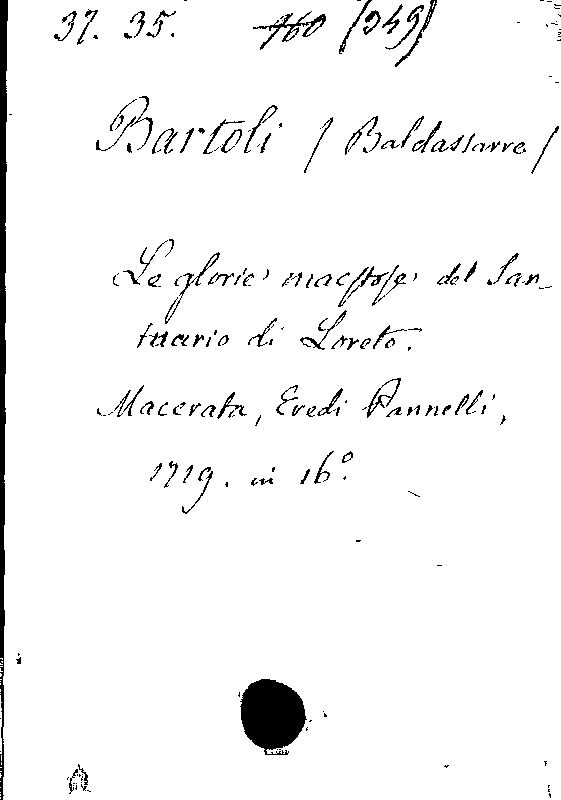 37. 35. 160 (349)
Bartoli / Baldassarre /
Le glorie maestose del San-
tuario di Loreto.
Macerata, Eredi Pannelli,
1719. in 16°.